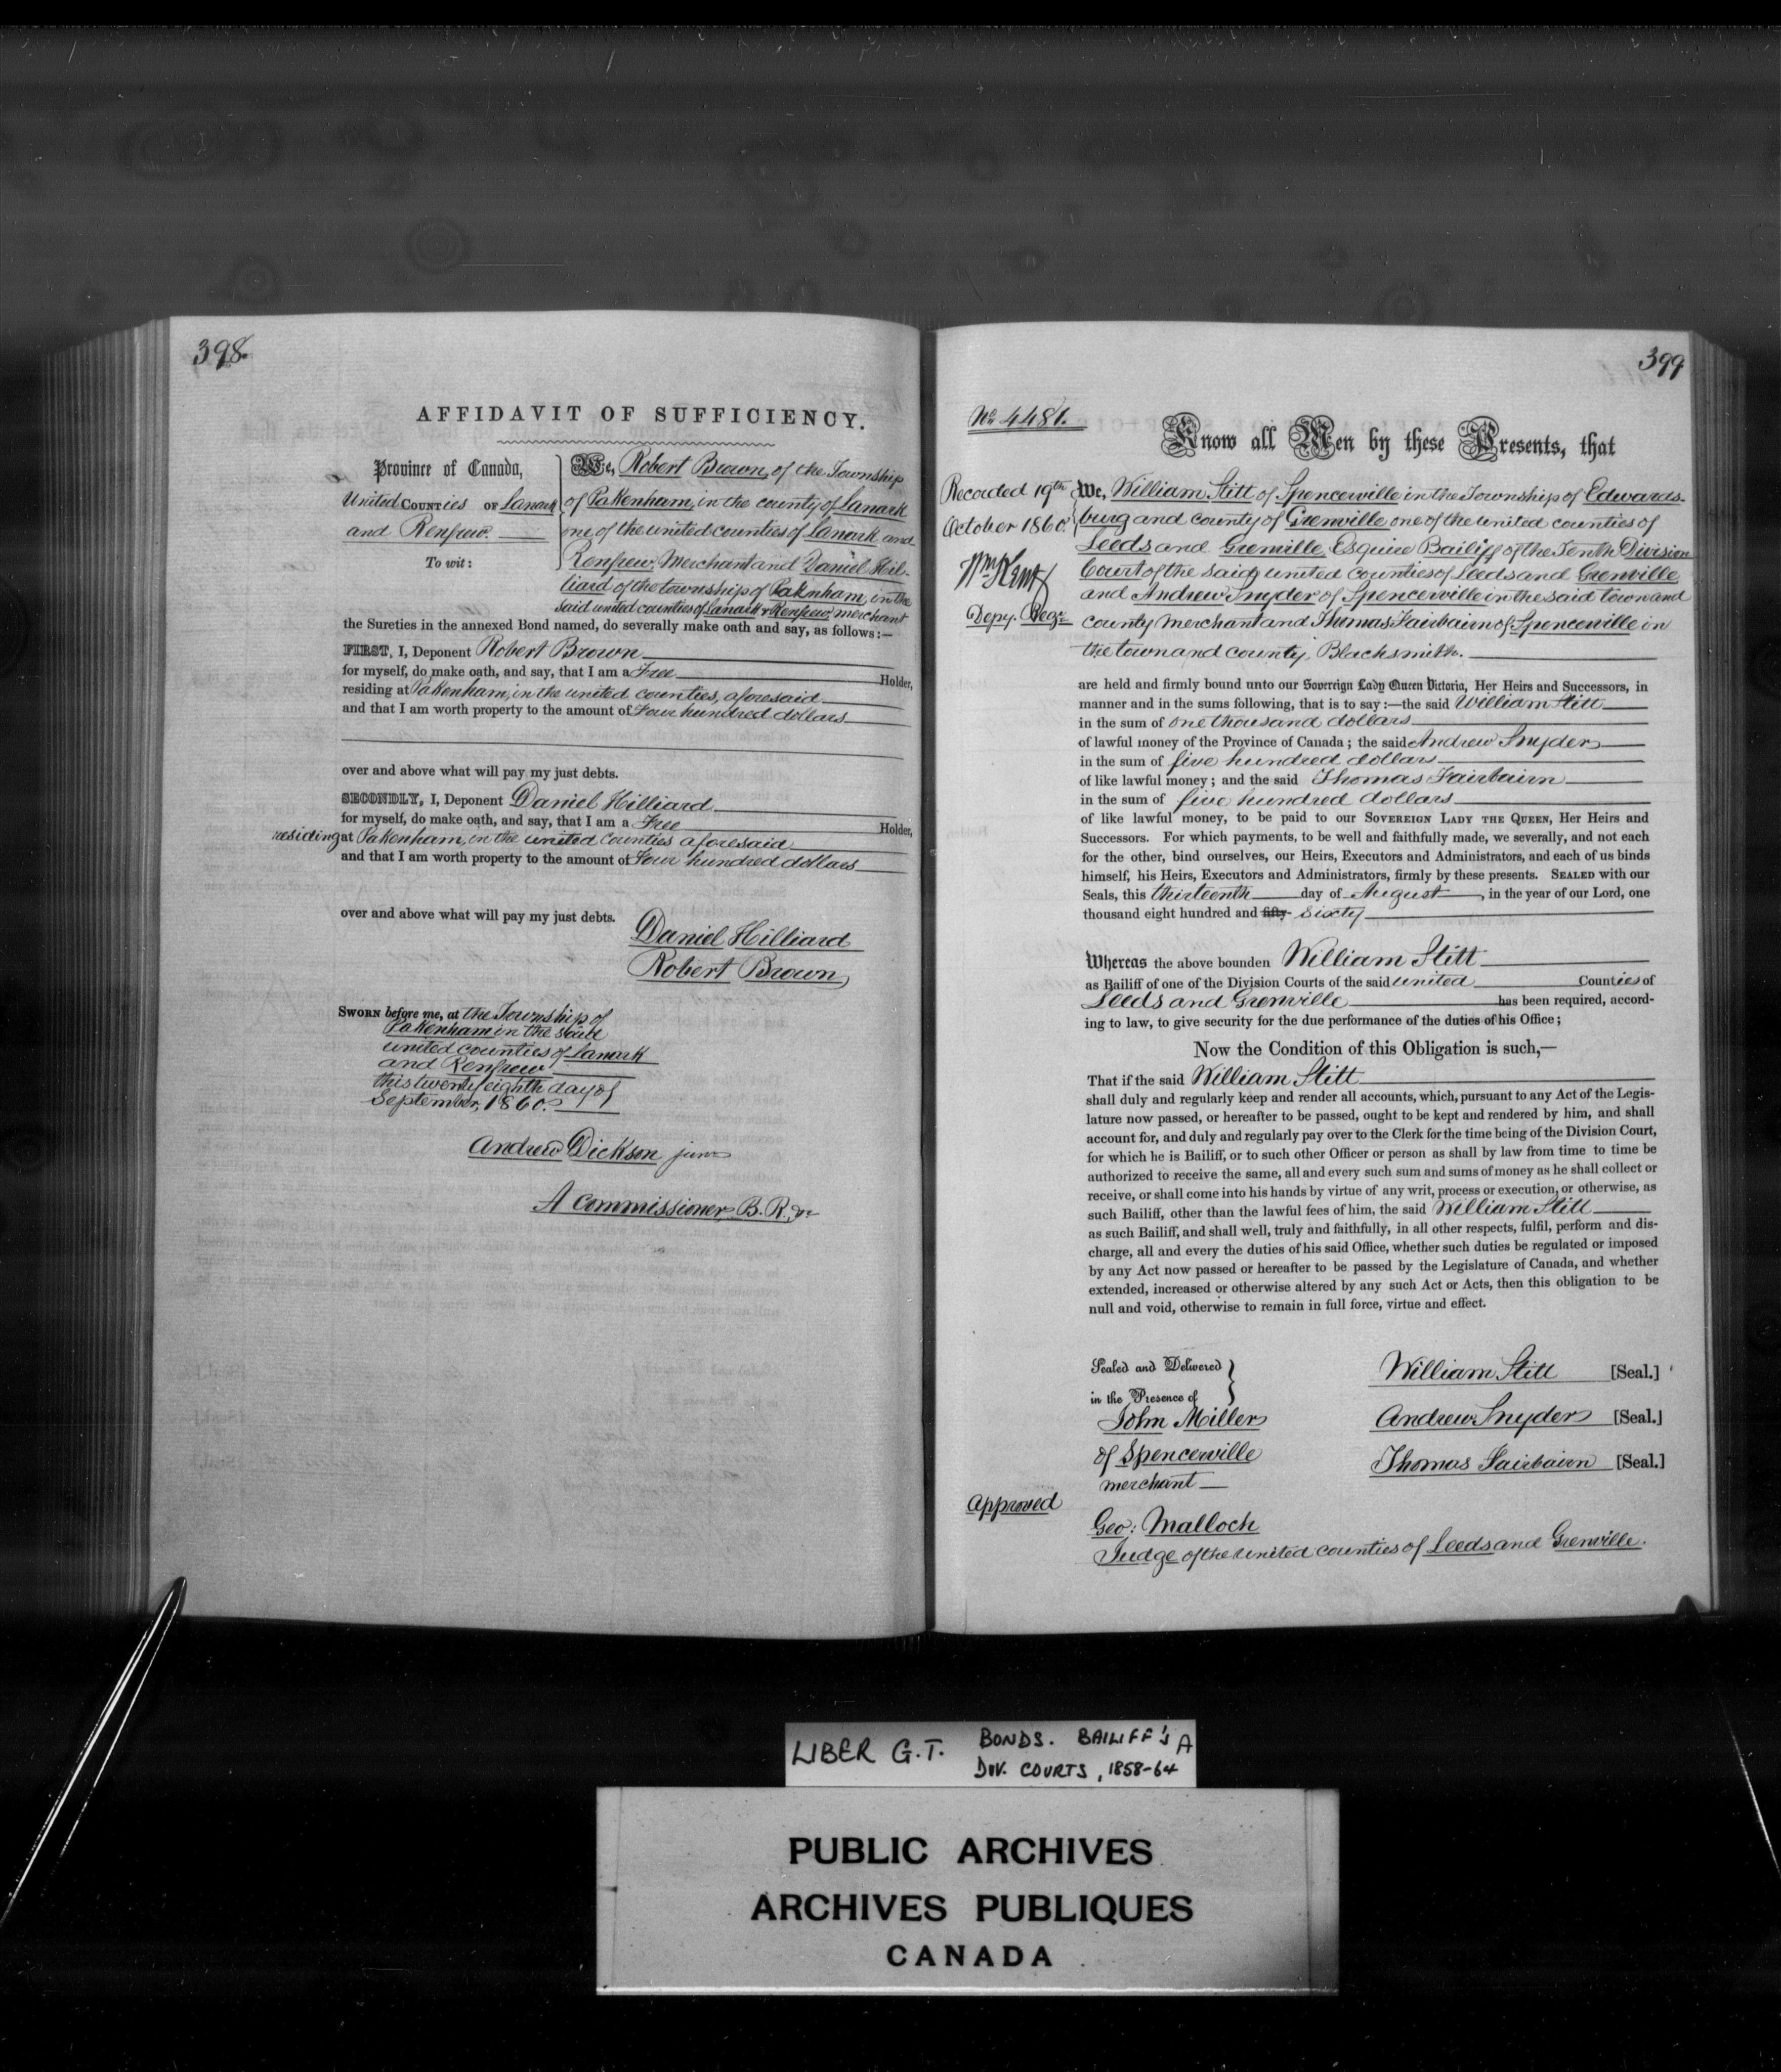 398.
AFFIDAVIT OF SUFFICIENCY.
Province of Canada,
United COUNTies OF Lanark
and Renfrew.
To wit:
We, Robert Brown, of the Township
of Pakenham, in the county of Lanark
one of the united counties of Lanark and
Renfrew, Merchant and Daniel Hil-
liard of the township of Paknham, in the
said united counties of Lanark & Renfrew, merchant
the Sureties in the annexed Bond named, do severally make oath and say, as follows:—
FIRST, I, Deponent Robert Brown
for myself, do make oath, and say, that I am a Free Holder,
residing at Pakenham, in the united counties, aforesaid
and that I am worth property to the amount of Four hundred dollars
over and above what will pay my just debts.
SECONDLY, I, Deponent Daniel Hilliard
for myself, do make oath, and say, that I am a Free Holder,
residing at Pakenham, in the united counties aforesaid
and that I am worth property to the amount of Four hundred dollars
over and above what will pay my just debts.
Daniel Hilliard
Robert Brown
SWORN before me, at the Township of
Pakenham in the said
united counties of Lanark
and Renfrew
this twenty eighth day of
September, 1860.
Andrew Dickson junr
A Commissioner, B. R. &c
399
No 4481.
Know all Men by these Presents, that
Recorded 19th
October 1860.
Wm Kent
Depy. Regr
We, William Stitt of Spencerville in the Township of Edwards-
burg and county of Grenville one of the united counties of
Leeds and Grenville, Esquire Bailiff of the Tenth Division
Court of the said united counties of Leeds and Grenville
and Andrew Snyder of Spencerville in the said town and
county merchant and Thomas Fairbairn of Spencerville in
the town and county, Blacksmith.
are held and firmly bound unto our Sovereign Lady Queen Victoria, Her Heirs and Successors, in
manner and in the sums following, that is to say:—the said William Stitt
in the sum of one thousand dollars
of lawful money of the Province of Canada; the said Andrew Snyder
in the sum of five hundred dollars
of like lawful money; and the said Thomas Fairbairn
in the sum of five hundred dollars
of like lawful money, to be paid to our SOVEREIGN LADY THE QUEEN, Her Heirs and
Successors. For which payments, to be well and faithfully made, we severally, and not each
for the other, bind ourselves, our Heirs, Executors and Administrators, and each of us binds
himself, his Heirs, Executors and Administrators, firmly by these presents. SEALED with our
Seals, this thirteenth day of August, in the year of our Lord, one
thousand eight hundred and fifty sixty
Whereas the above bounden William Stitt
as Bailiff of one of the Division Courts of the said united Counties of
Leeds and Grenville has been required, accord-
ing to law, to give security for the due performance of the duties of his Office;
Now the Condition of this Obligation is such,—
That if the said William Stitt
shall duly and regularly keep and render all accounts, which, pursuant to any Act of the Legis-
lature now passed, or hereafter to be passed, ought to be kept and rendered by him, and shall
account for, and duly and regularly pay over to the Clerk for the time being of the Division Court,
for which he is Bailiff, or to such other Officer or person as shall by law from time to time be
authorized to receive the same, all and every such sum and sums of money as he shall collect or
receive, or shall come into his hands by virtue of any writ, process or execution, or otherwise, as
such Bailiff, other than the lawful fees of him, the said William Stitt
as such Bailiff, and shall well, truly and faithfully, in all other respects, fulfil, perform and dis-
charge, all and every the duties of his said Office, whether such duties be regulated or imposed
by any Act now passed or hereafter to be passed by the Legislature of Canada, and whether
extended, increased or otherwise altered by any such Act or Acts, then this obligation to be
null and void, otherwise to remain in full force, virtue and effect.
Sealed and Delivered
in the Presence of
John Miller
of Spencerville
merchant
William Stitt [Seal.]
Andrew Snyder [Seal.]
Thomas Fairbairn [Seal.]
Approved
Geo: Malloch
Judge of the united counties of Leeds and Grenville.
LIBER G.T. BONDS. BAILIFF'S A
DIV. COURTS, 1858-64
PUBLIC ARCHIVES
ARCHIVES PUBLIQUES
CANADA